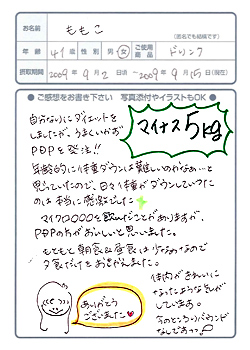 お名前 ももこ
(匿名でも結構です)
年齢 41才 性別 男・女 ご使用商品 ドリンク
摂取期間 2009年9月2日頃〜2009年9月15日(現在)
●ご感想をお書き下さい 写真添付やイラストもOK●
自分なりにダイエットを
しましたが、うまくいかず
PDPを発注!!
マイナス5kg
年齢的に体重ダウンは難しいのかなぁ…と
思っていたので、日々体重がダウンしていった
のは本当に感激でした
マイクロ○○○を飲んだことがありますが、
PDPの方がおいしいと思いました。
もともと朝食&昼食は少なめなので
夕食だけをおきかえました。
ありがとう
ございました
体内がきれいに
なったような気が
しています。
今のところリバウンド
なしですっ